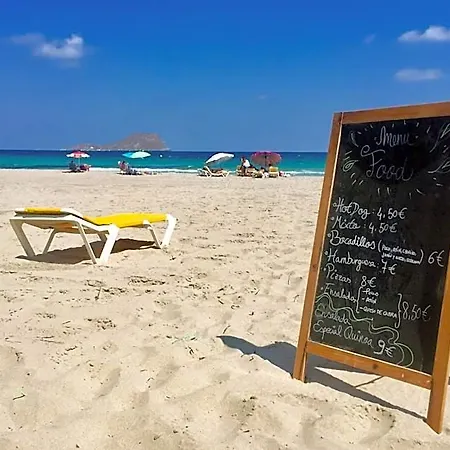 Menu
Food
Hot Dog : 4,50€
Mixta : 4,50€
Bocadillos ( 6€
Hamburguesa 7€
Pizzas 8€
Ensalada 8,50€
QUESO DE CABRA
Ensalada
Especial Quinoa 9€